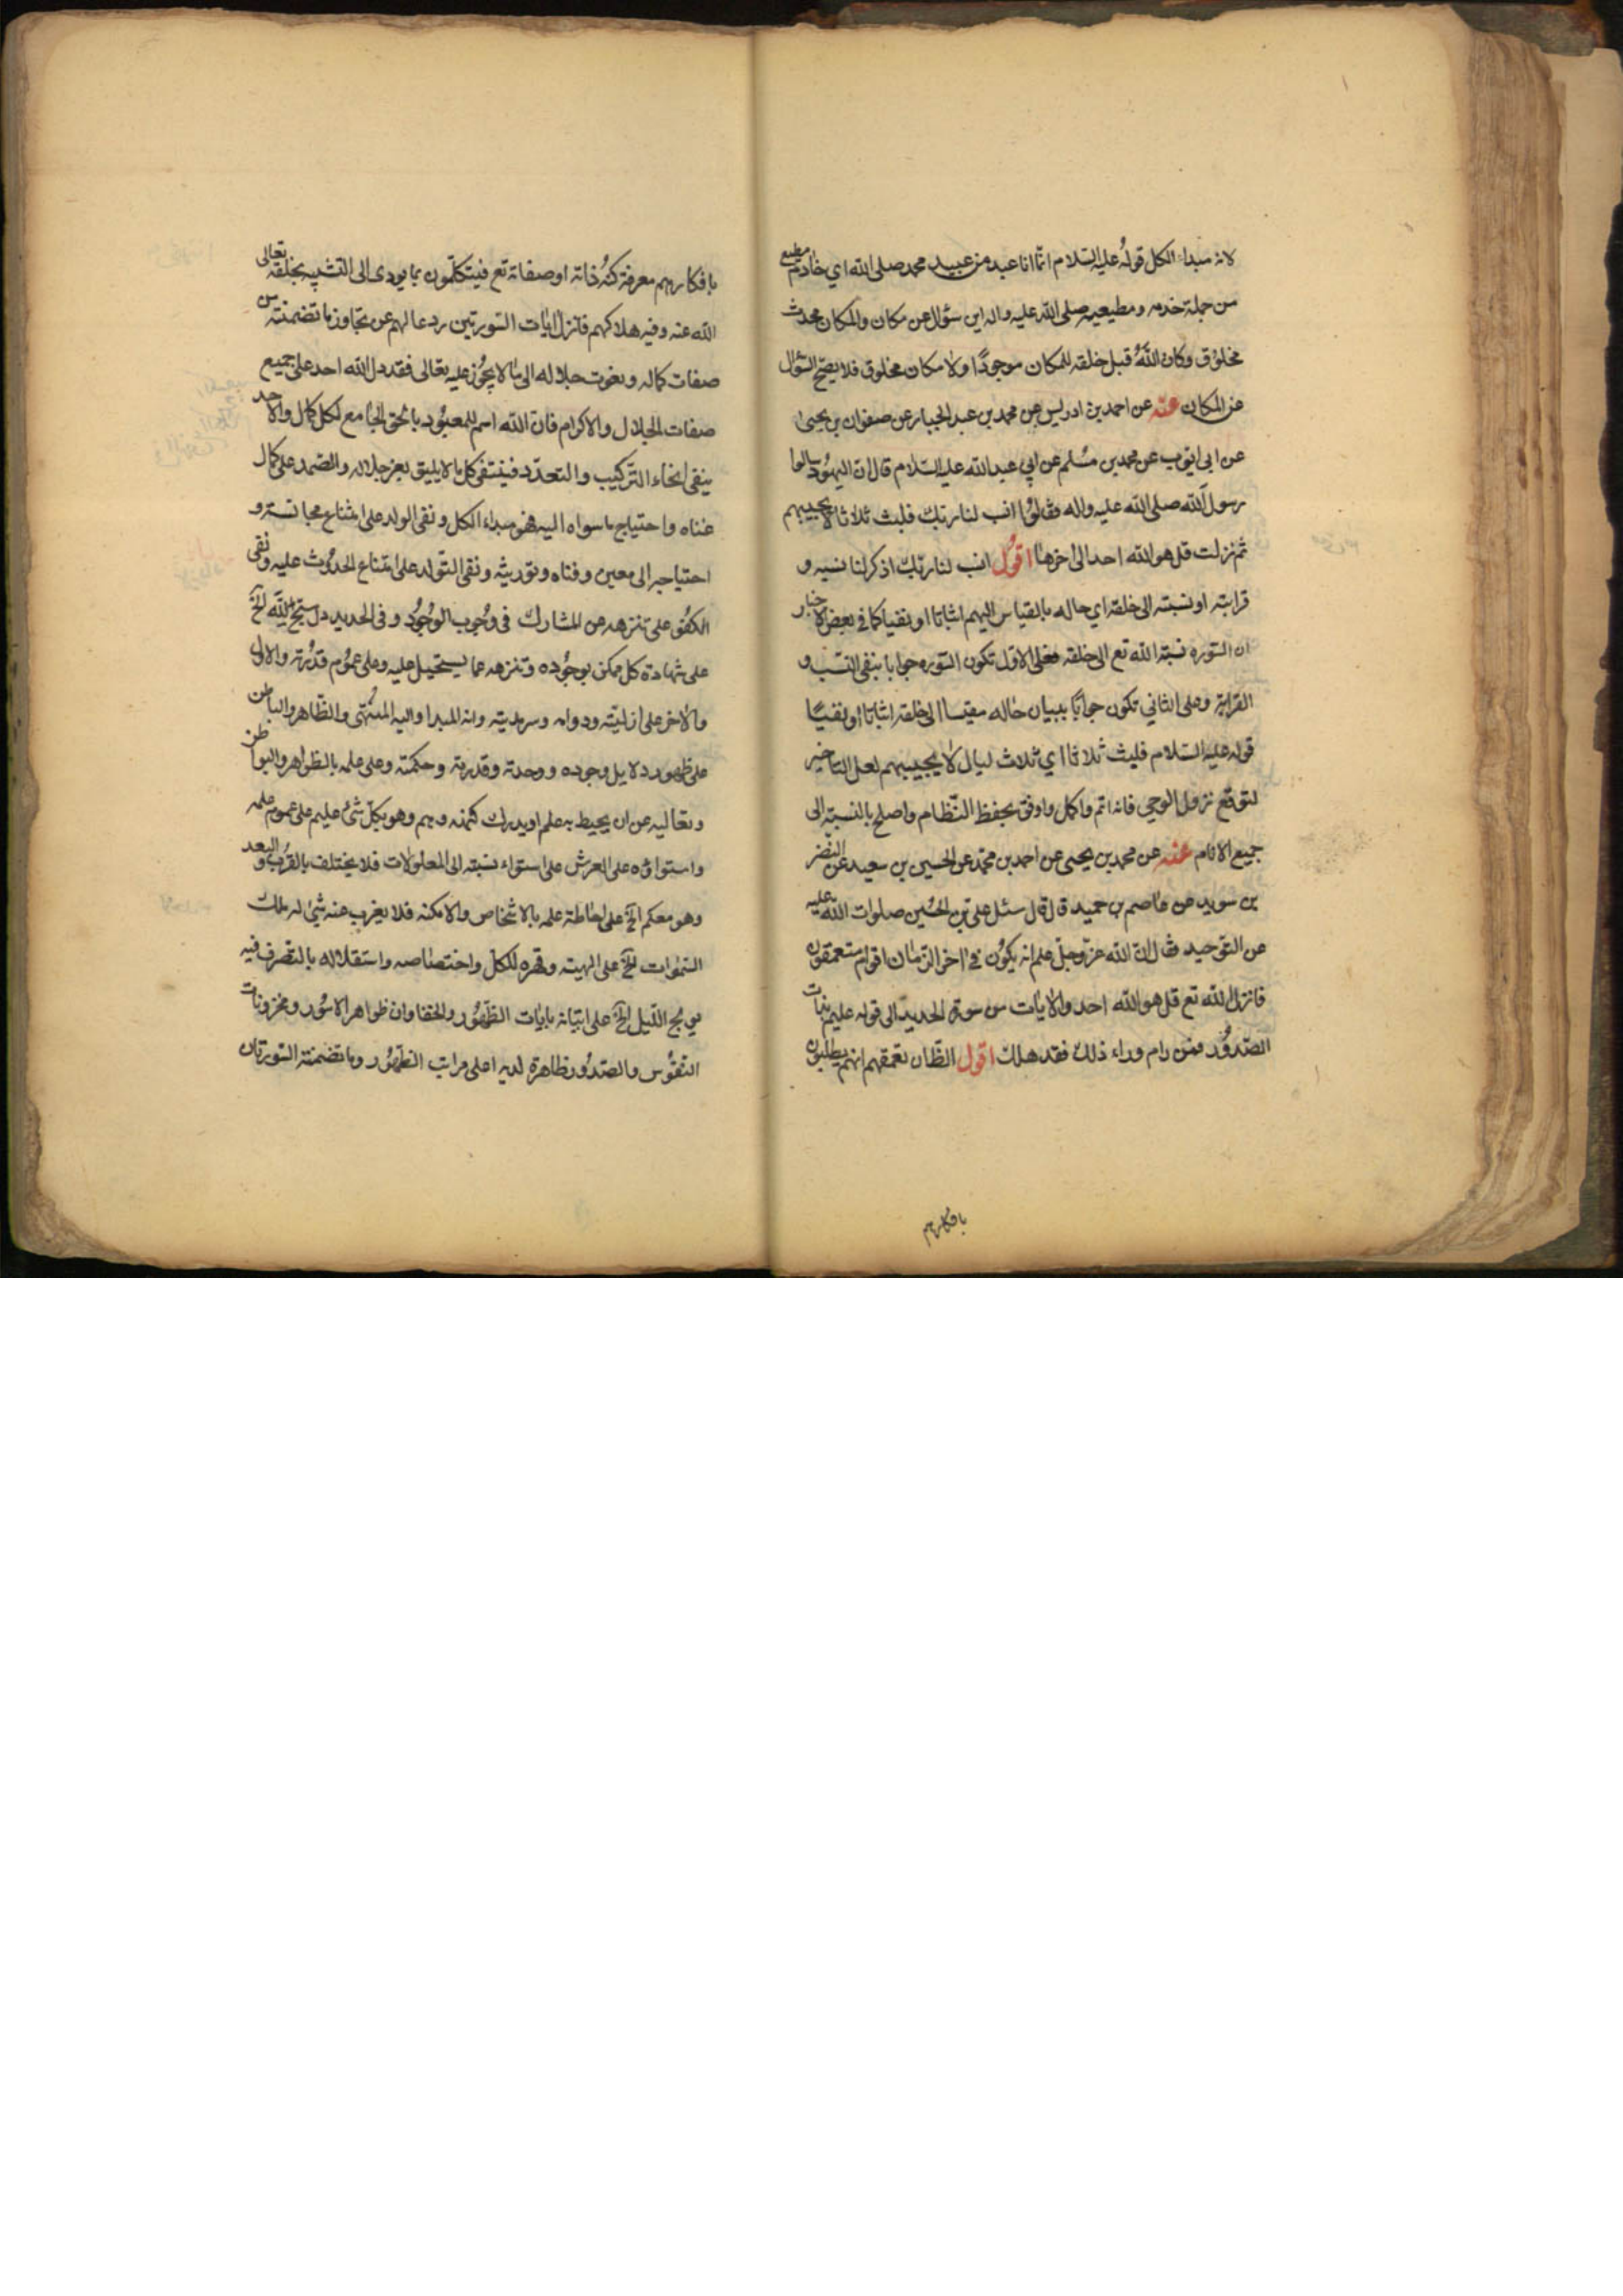 لانه مبداء الكل قولُه عليه السّلام انّما انا عبد من عبيد محمد صلى الله اي خادم مطيع
من جملة خدمه ومطيعيه صلى الله عليه واله اين سئوال عن مكان والمكان محدث
مخلوق وكان اللهُ قبل خلقه للمكان موجودًا ولا مكان مخلوق فلا يصحّ السّئوال
عن المكان عنه عن احمد بن ادريس عن محمد بن عبد الجبار عن صفوان بن يحيى
عن ابى ايّوب عن محمد بن مسُلم عن ابي عبد الله عليه السّلام قال ان اليهُود سالوا
رسول الله صلى الله عليه واله فقالُوا انسب لنا ربّك فلبث ثلاثا لا يجيبهم
ثم نزلت قل هو الله احد الى اخرها اقول انسب لنا ربّك اذكر لنا نسبه و
قرابته او نسبته الى خلقه اي حاله بالقياس اليهم اثباتا او نفيا كما في بعض الاخبار
ان السّوره نسبة الله تع الى خلقه فعلى الاوّل تكون السّوره جوابا بنفى النسب و
القرابة وعلى الثاني تكون جوابًا ببيان حاله مقيسا الى خلقه اثباتا او نفيًا
قوله عليه السّلام فلبث ثلاثا اي ثلاث ليال لا يجيبهم لعل التاخير
لتوقع نزول الوحي فانه اتم واكمل واوفق بحفظ النّظام واصلح بالنسبة الى
جميع الانام عنه عن محمد بن يحيى عن احمد بن محمّد عن الحسين بن سعيد عن النضر
بن سويد عن عاصم بن حميد قال قال سئل على بن الحسُين صلوات الله عليه
عن التوحيد فقال انّ الله عزّ وجلّ علم انه يكُون في اخر الزّمان اقوام متعمقون
فانزل الله تع قل هو الله احد والايات من سورة الحديد الى قوله عليم بذات
الصّدوُر فمن رام وراء ذلك فقد هلك اقول الظّان تعمقهم انهم يطلبون
بافكارهم
بافكارهم معرفة كنُه ذاته او صفاته تع فيتكلّمون بما يودى الى التشبيه بخلقه تعالى
الله عنه وفيه هلاكهم فانزل ايات السّورتين ردعا لهم عن تجاوز ما تضمنته من
صفات كماله ونعوت جلاله الى ما لا يجُوز عليه تعالى فقد دل الله احد على جميع
صفات الجلال والاكرام فان الله اسم للمعبُود بالحق الجامع لكل كمال والاحد
ينفى انحاء التّركيب والتعدّد فينتفى كل ما لا يليق بعز جلاله والصّمد على كمال
غناه واحتياج ما سواه اليه فهو مبداء الكل ونفى الولد على امتناع مجانسته و
احتياجه الى معين وفناه وتوريثه ونفى التّولد على امتناع الحدُوث عليه ونفى
الكفُو على تنزهه عن المشارك فى وجُوب الوجُود وفى الحديد دل سبّح لله الخ
على شهادة كل ممكن بوجُوده وتنزهه عما يستحيل عليه وعلى عمُوم قدُرته والاول
والاخر على ازليّته ودوامه وسرمديته وانه المبدا واليه المنُتهى والظاهر والباطن
على ظهور دلايل وجوده ووحدته وقدرته وحكمته وعلى علمه بالظواهر والبواطن
وتعاليه عن ان يحيط به علم او يدرك كنهه وهم وهو بكلّ شئ عليم على عموم علمه
واستواؤه على العرش على استواء نسبته الى المعلولات فلا يختلف بالقرُب والبعد
وهو معكم الخ على احاطة علمه بالاشخاص والامكنه فلا يعزب عنه شئ له ملك
السّموات الخ على الهيته وقهره للكلّ واختصاصه واستقلاله بالتصرف فيه
يولج اللّيل الخ على اتيانه بايات الظهُور والخفا وان ظواهر الامُور ومخزونات
النّفوُس والصّدُور ظاهرة لديه اعلى مراتب الظهُور وما تضمنته السّورتان